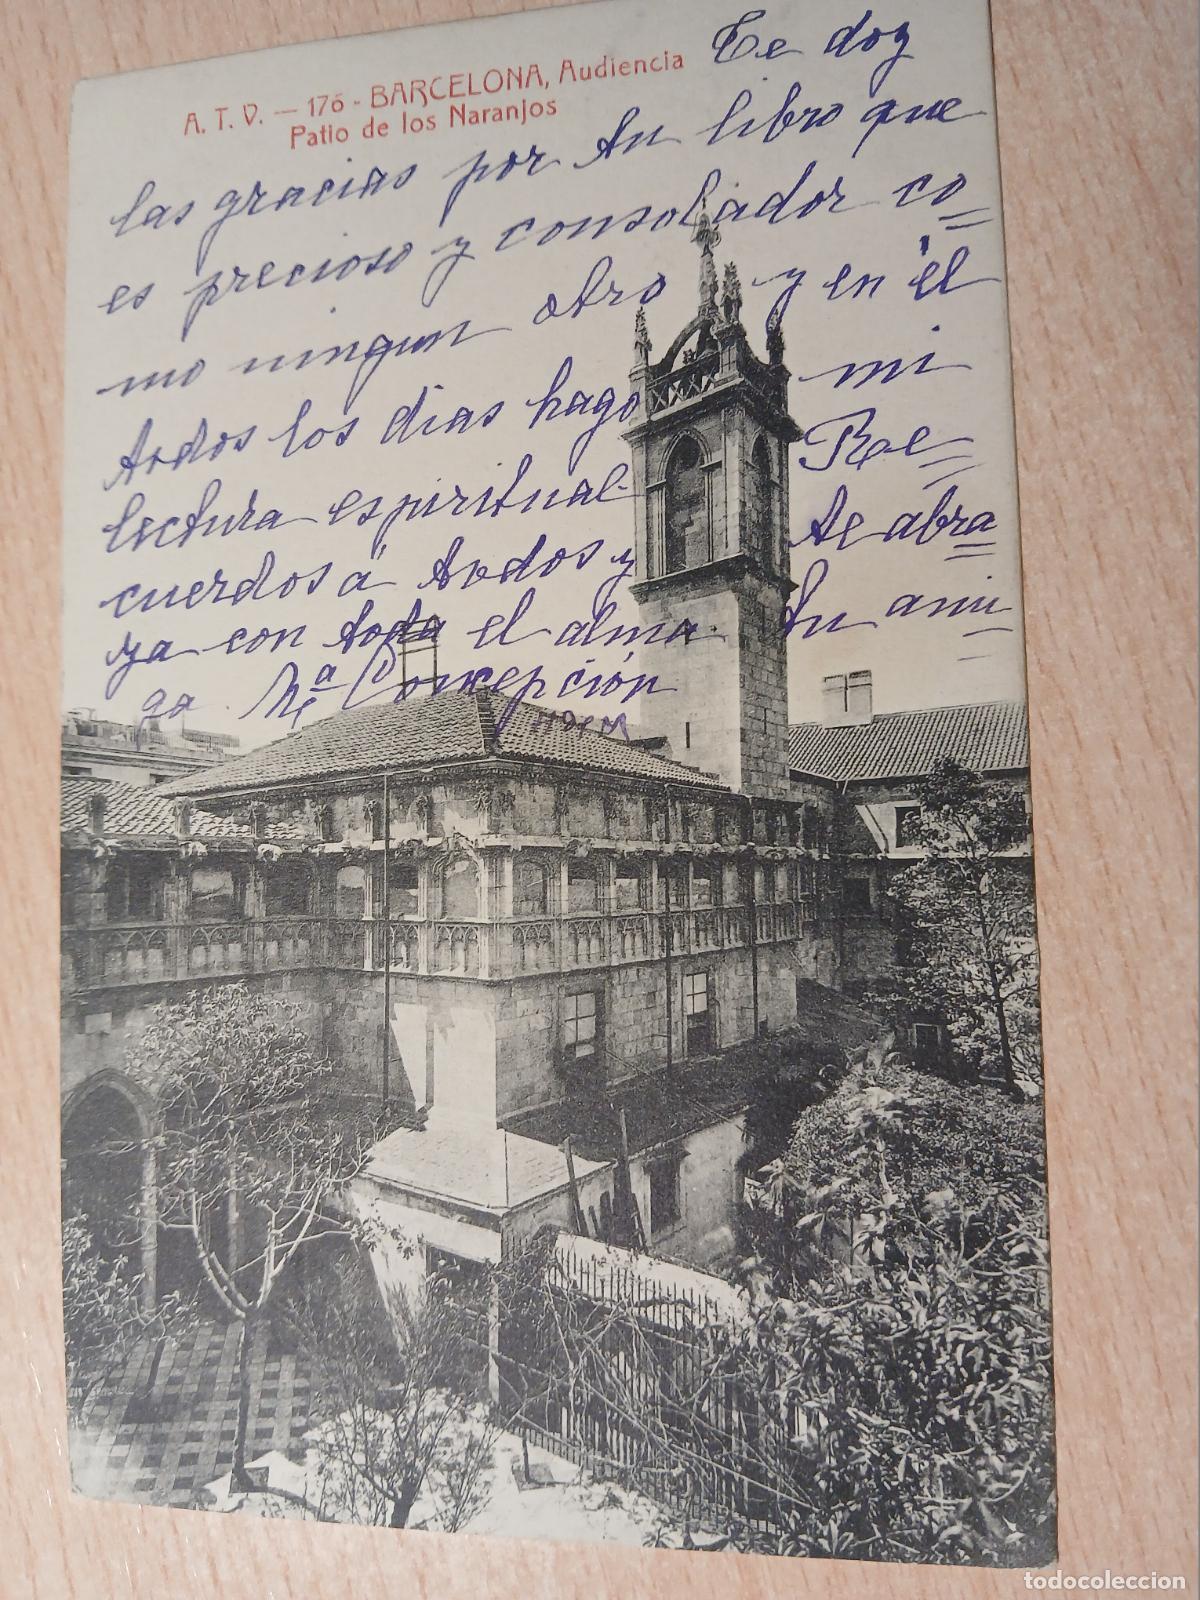 A. T. V. — 176 - BARCELONA, Audiencia
Patio de los Naranjos
Te doy
las gracias por tu libro que
es precioso y consolador co=
mo ningun otro y en él
todos los dias hago mi
lectura espiritual. Re=
cuerdos á todos y te abra=
ya con toda el alma. tu ami=
ga Mª Concepción
todocoleccion